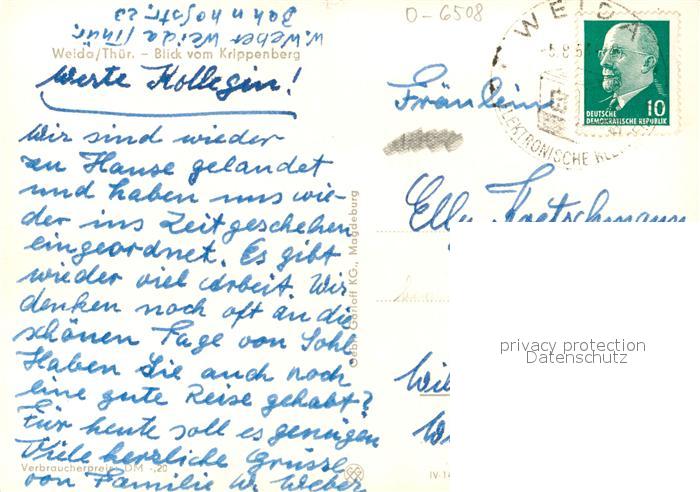 W. Weber Weida/Thür.
Bahnhofstr. 23
Weida/Thür. – Blick vom Krippenberg
Werte Kollegin!
Wir sind wieder
zu Hause gelandet
und haben uns wie-
der ins Zeitgeschehen
eingeordnet. Es gibt
wieder viel Arbeit. Wir
denken noch oft an die
schönen Tage von Sohl.
Haben Sie auch noch
eine gute Reise gehabt?
Für heute soll es genügen
Viele herzliche Grüsse
von Familie W. Weber
Verbraucherpreis: DM -,20
Gebr. Garloff KG., Magdeburg
IV-14
O-6508
WEIDA
ELEKTRONISCHE
10
DEUTSCHE
DEMOKRATISCHE REPUBLIK
Fräulein
Elly Kretschmann
privacy protection
Datenschutz